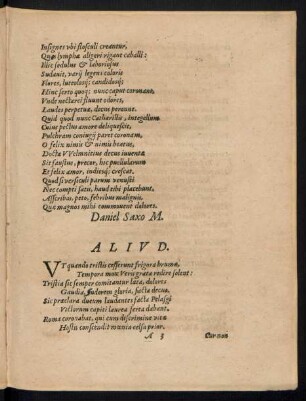 Insignes vbi flosculi creantur,
Quæ lymphæ aligeri rigant caballi:
Hic sedulus & laboriosus
Sudauit, varij legens coloris
Flores, luteolosq; candidosq;
Hinc serto quoq; nunc caput coronant,
Vnde nectarei fluunt odores,
Laudes perpetuæ, decus perenne.
Quid quod nunc Catharillæ, integellum
Cuius pectus amore deliquescit,
Pulchram coniugij paret coronam,
O felix nimis & nimis beatus,
Docta VVelmnitius decus iuuentæ
Sis faustus, precor, hic pusillulumum
Et felix amor, indiesq; crescat,
Quod si versiculi parum venusti
Nec compti satis, haud tibi placebunt,
Asscribas, peto, febribus malignis,
Quæ magnos mihi commouent dolores.
Daniel Saxo M.
ALIVD.
VT quando tristis cesserunt frigora brumæ,
Tempora mox Veris grata redire solent:
Tristia sic semper comitantur læta, dolores
Gaudia, sudorem gloria, facta decus.
Sic præclara ducum laudantes facta Pelasgi
Victorum capiti laurea serta dabant.
Roma coronabat, qui cum discrimine vitæ
Hostis conscendit mœnia celsa prior.
A 3
Cur non